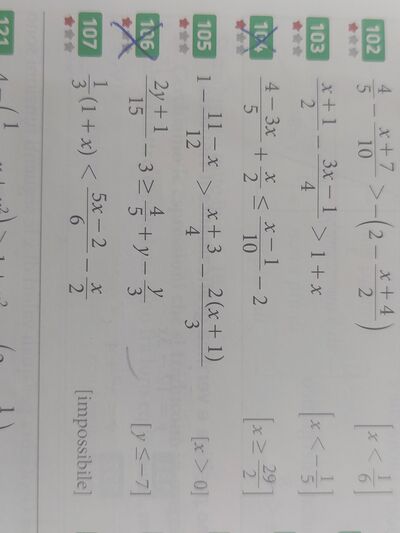 102 4/5 − (x + 7)/10 > −(2 − (x + 4)/2) [x < 1/6]
103 (x + 1)/2 − (3x − 1)/4 > 1 + x [x < −1/5]
104 (4 − 3x)/5 + x/2 ≤ (x − 1)/10 − 2 [x ≥ 29/2]
105 1 − (11 − x)/12 > (x + 3)/4 − 2(x + 1)/3 [x > 0]
106 (2y + 1)/15 − 3 ≥ 4/5 + y − y/3 [y ≤ −7]
107 1/3 (1 + x) < (5x − 2)/6 − x/2 [impossibile]
121